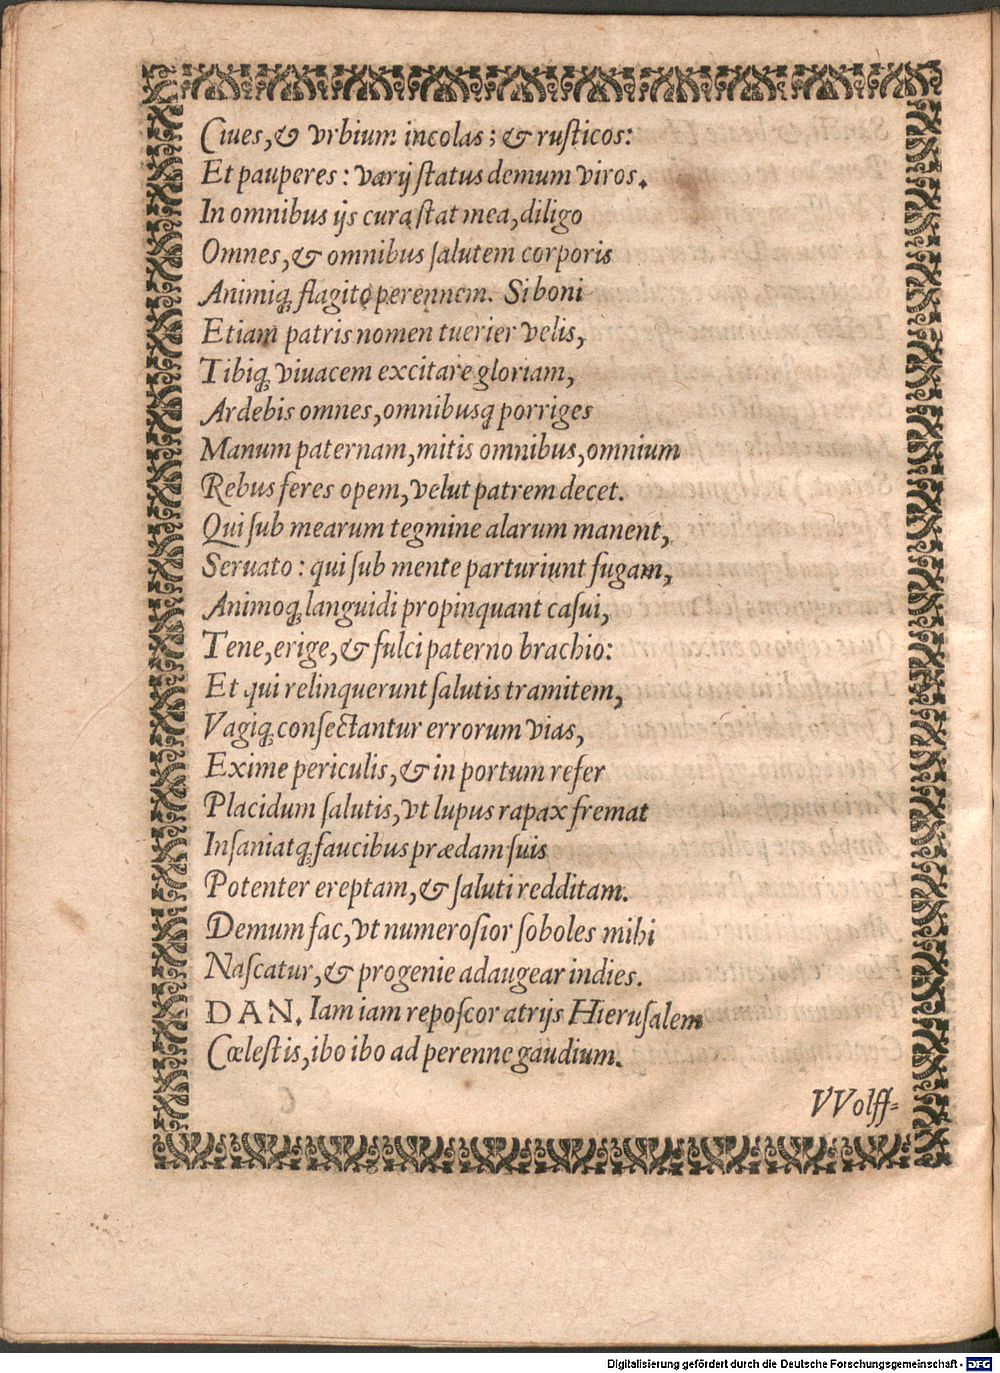 Ciues, & vrbium incolas; & ruſticos:
Et pauperes: varij ſtatus demum viros.
In omnibus ijs cura ſtat mea, diligo
Omnes, & omnibus ſalutem corporis
Animiq; flagito perennem. Si boni
Etiam patris nomen tuerier velis,
Tibiq; viuacem excitare gloriam,
Ardebis omnes, omnibusq; porriges
Manum paternam, mitis omnibus, omnium
Rebus feres opem, velut patrem decet.
Qui ſub mearum tegmine alarum manent,
Seruato: qui ſub mente parturiunt fugam,
Animoq; languidi propinquant caſui,
Tene, erige, & fulci paterno brachio:
Et qui relinquerunt ſalutis tramitem,
Vagiq; conſectantur errorum vias,
Exime periculis, & in portum refer
Placidum ſalutis, vt lupus rapax fremat
Inſaniatq; faucibus prædam ſuis
Potenter ereptam, & ſaluti redditam.
Demum fac, vt numeroſior ſoboles mihi
Naſcatur, & progenie adaugear indies.
DAN. Iam iam repoſcor atrijs Hieruſalem
Cœleſtis, ibo ibo ad perenne gaudium.
VVolff-
Digitalisierung gefördert durch die Deutsche Forschungsgemeinschaft - DFG